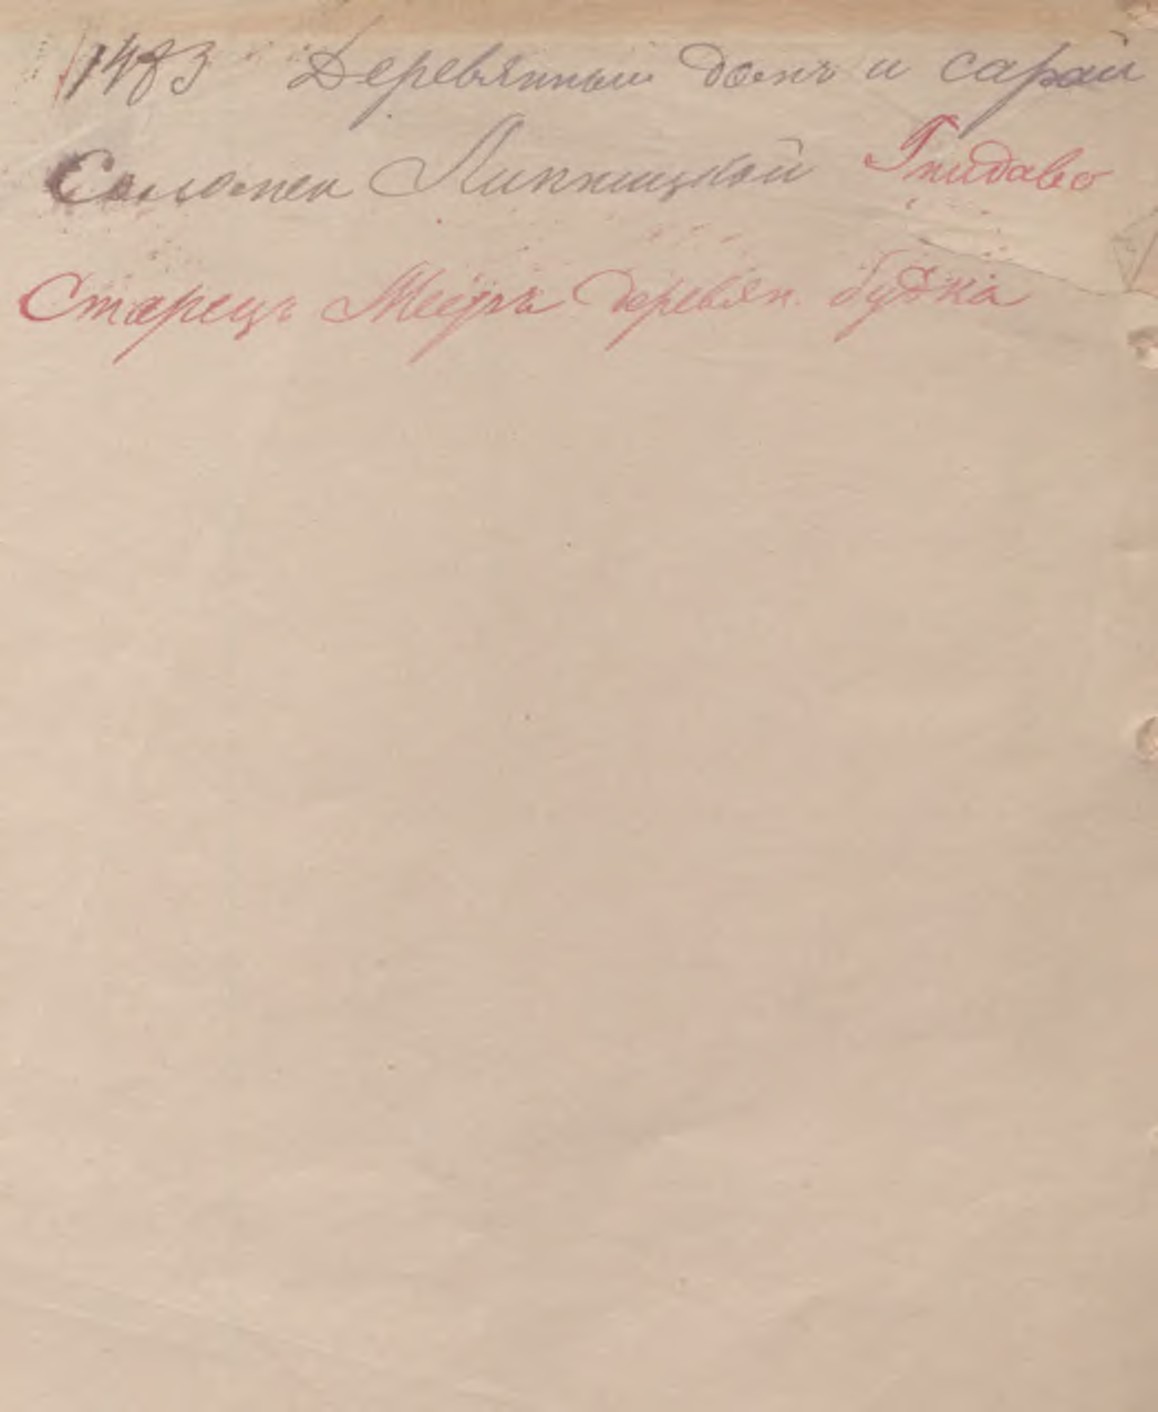 1483 Деревянный домъ и сарай
Соломеи Липницкой Гнидаво
Старецъ Мееръ деревян. будка